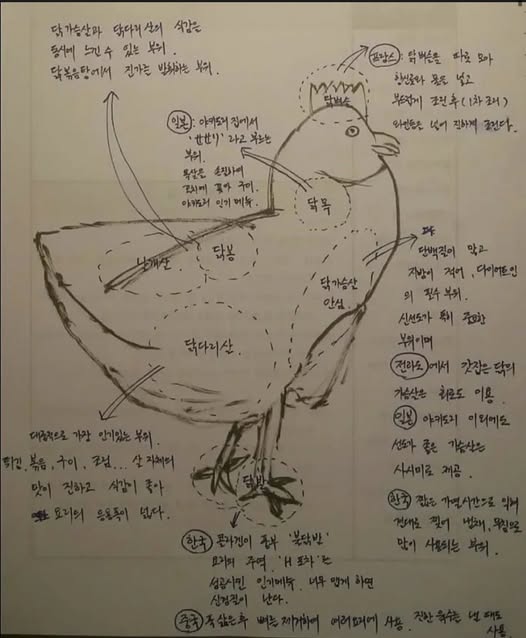 닭가슴살과 닭다리살의 식감을
동시에 느낄 수 있는 부위.
닭볶음탕에서 진가를 발휘하는 부위.
프랑스: 닭벼슬을 따로 모아
향신료와 물을 넣고
부드럽게 조린 후 (1차 조리)
와인등을 넣어 진하게 졸인다.
닭벼슬
일본: 야키토리 집에서
'せせり' 라고 부르는
부위.
목살을 손질하여
꼬치에 꽂아 구이.
야키토리 인기메뉴.
닭목
날개살
닭봉
닭가슴살
안심
닭다리살
단백질이 많고
지방이 적어, 다이어트인
의 필수 부위.
신선도가 특히 중요한
부위이며
전라도에서 갓잡은 닭의
가슴살은 회로도 이용.
일본 야키토리 이외에도
선도가 좋은 가슴살은
사시미로 제공.
한국 짧은 가열시간으로 익혀
결대로 찢어 냉채, 무침으로
많이 사용되는 부위.
대중적으로 가장 인기있는 부위.
튀김, 볶음, 구이, 조림... 살 자체의
맛이 진하고 식감이 좋아
요리의 응용폭이 넓다.
닭발
한국 콜라겐이 풍부 '불닭발'
요리의 주역. 'H 포차'는
성공시킨 인기메뉴. 너무 맵게 하면
신경질이 난다.
중국 푹 삶은 후 뼈를 제거하여 여러요리에 사용. 진한 육수를 낼 때도
사용